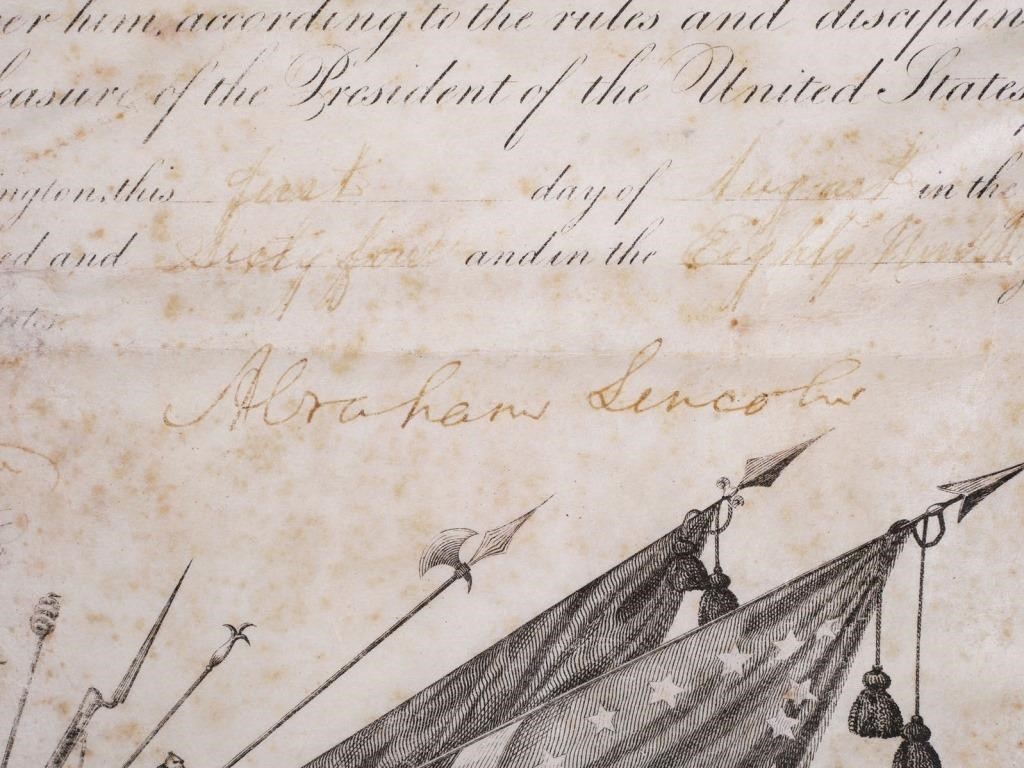 er him, according to the rules and disciplin
easure of the President of the United States
ngton, this first day of August in the
ed and Sixty four and in the Eighty Ninth
tates.
Abraham Lincoln